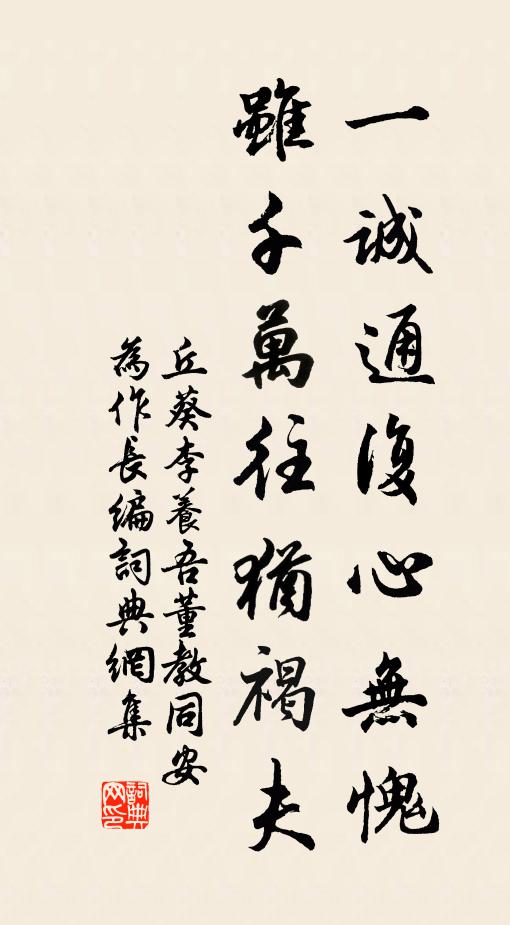 一誠通復心無愧
雖千萬往猶褐夫
丘葵李養吾董教同安
為作長編詞典網集
詞典
网印